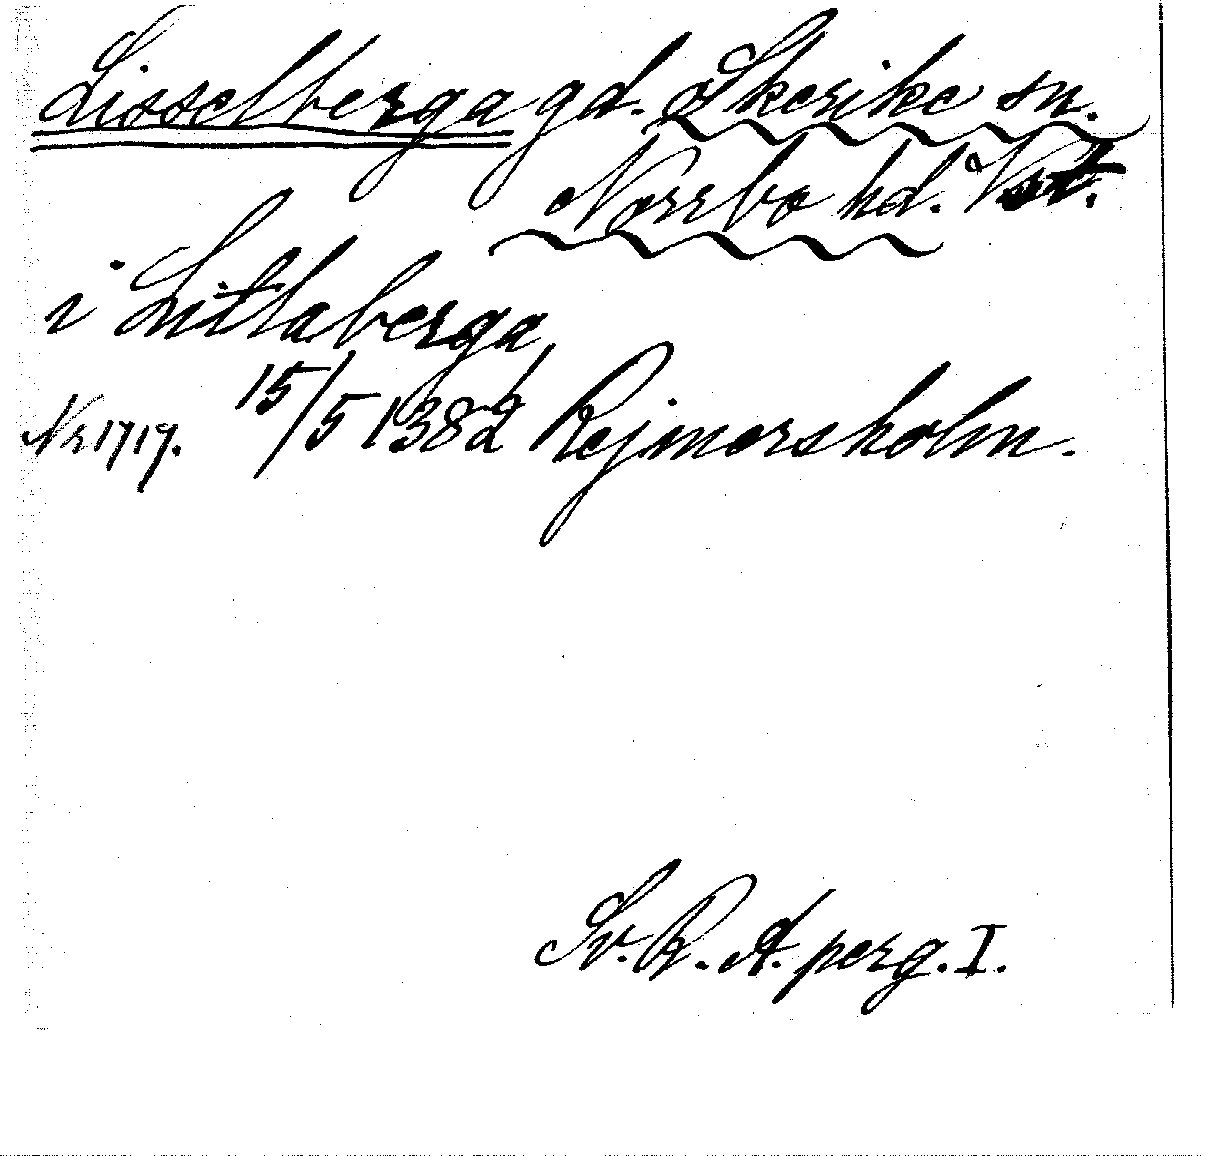 Lisselberga gd. Skerike sn.
Norrbo hd. Vst.
i Litlaberga
Nr 1717. 15/5 1382 Rejmersholm.
Sv. R. A. perg. I.